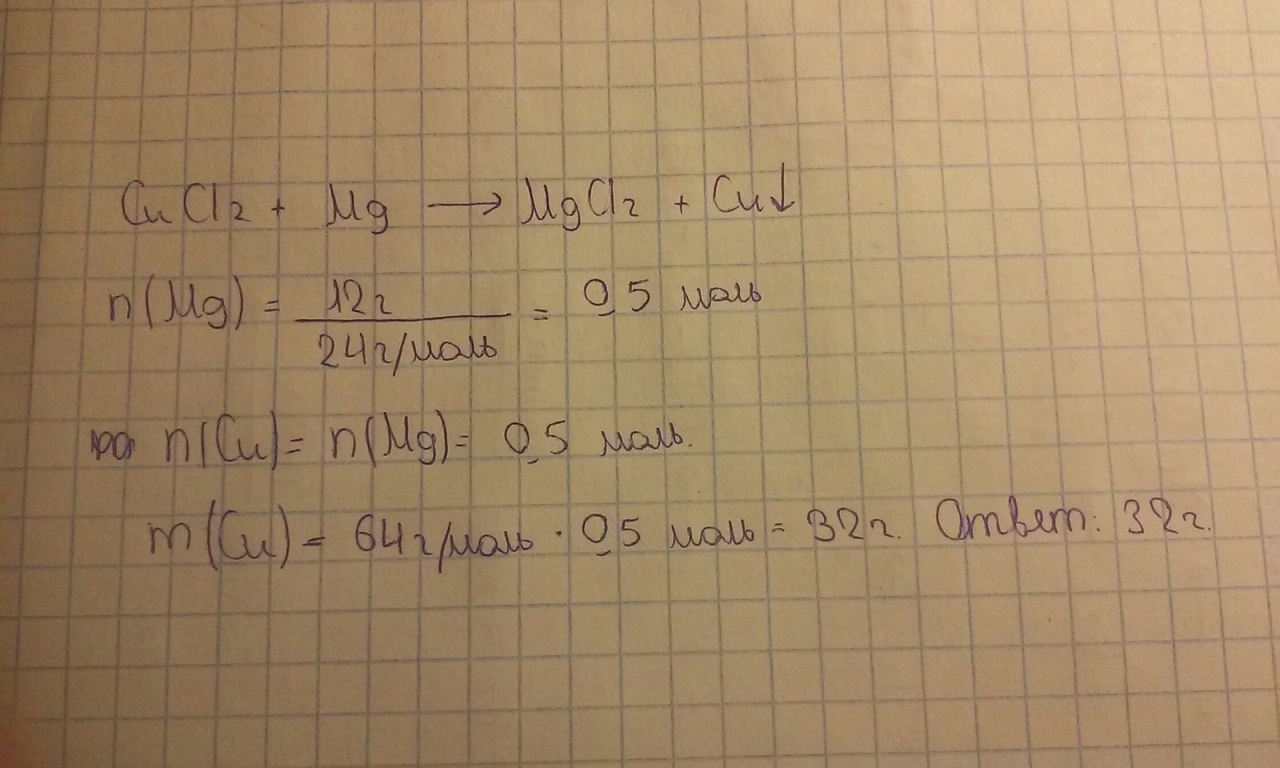 CuCl₂ + Mg → MgCl₂ + Cu↓
n(Mg) = 12г / 24г/моль = 0,5 моль
n(Cu) = n(Mg) = 0,5 моль.
m(Cu) = 64г/моль · 0,5 моль = 32г. Ответ: 32г.